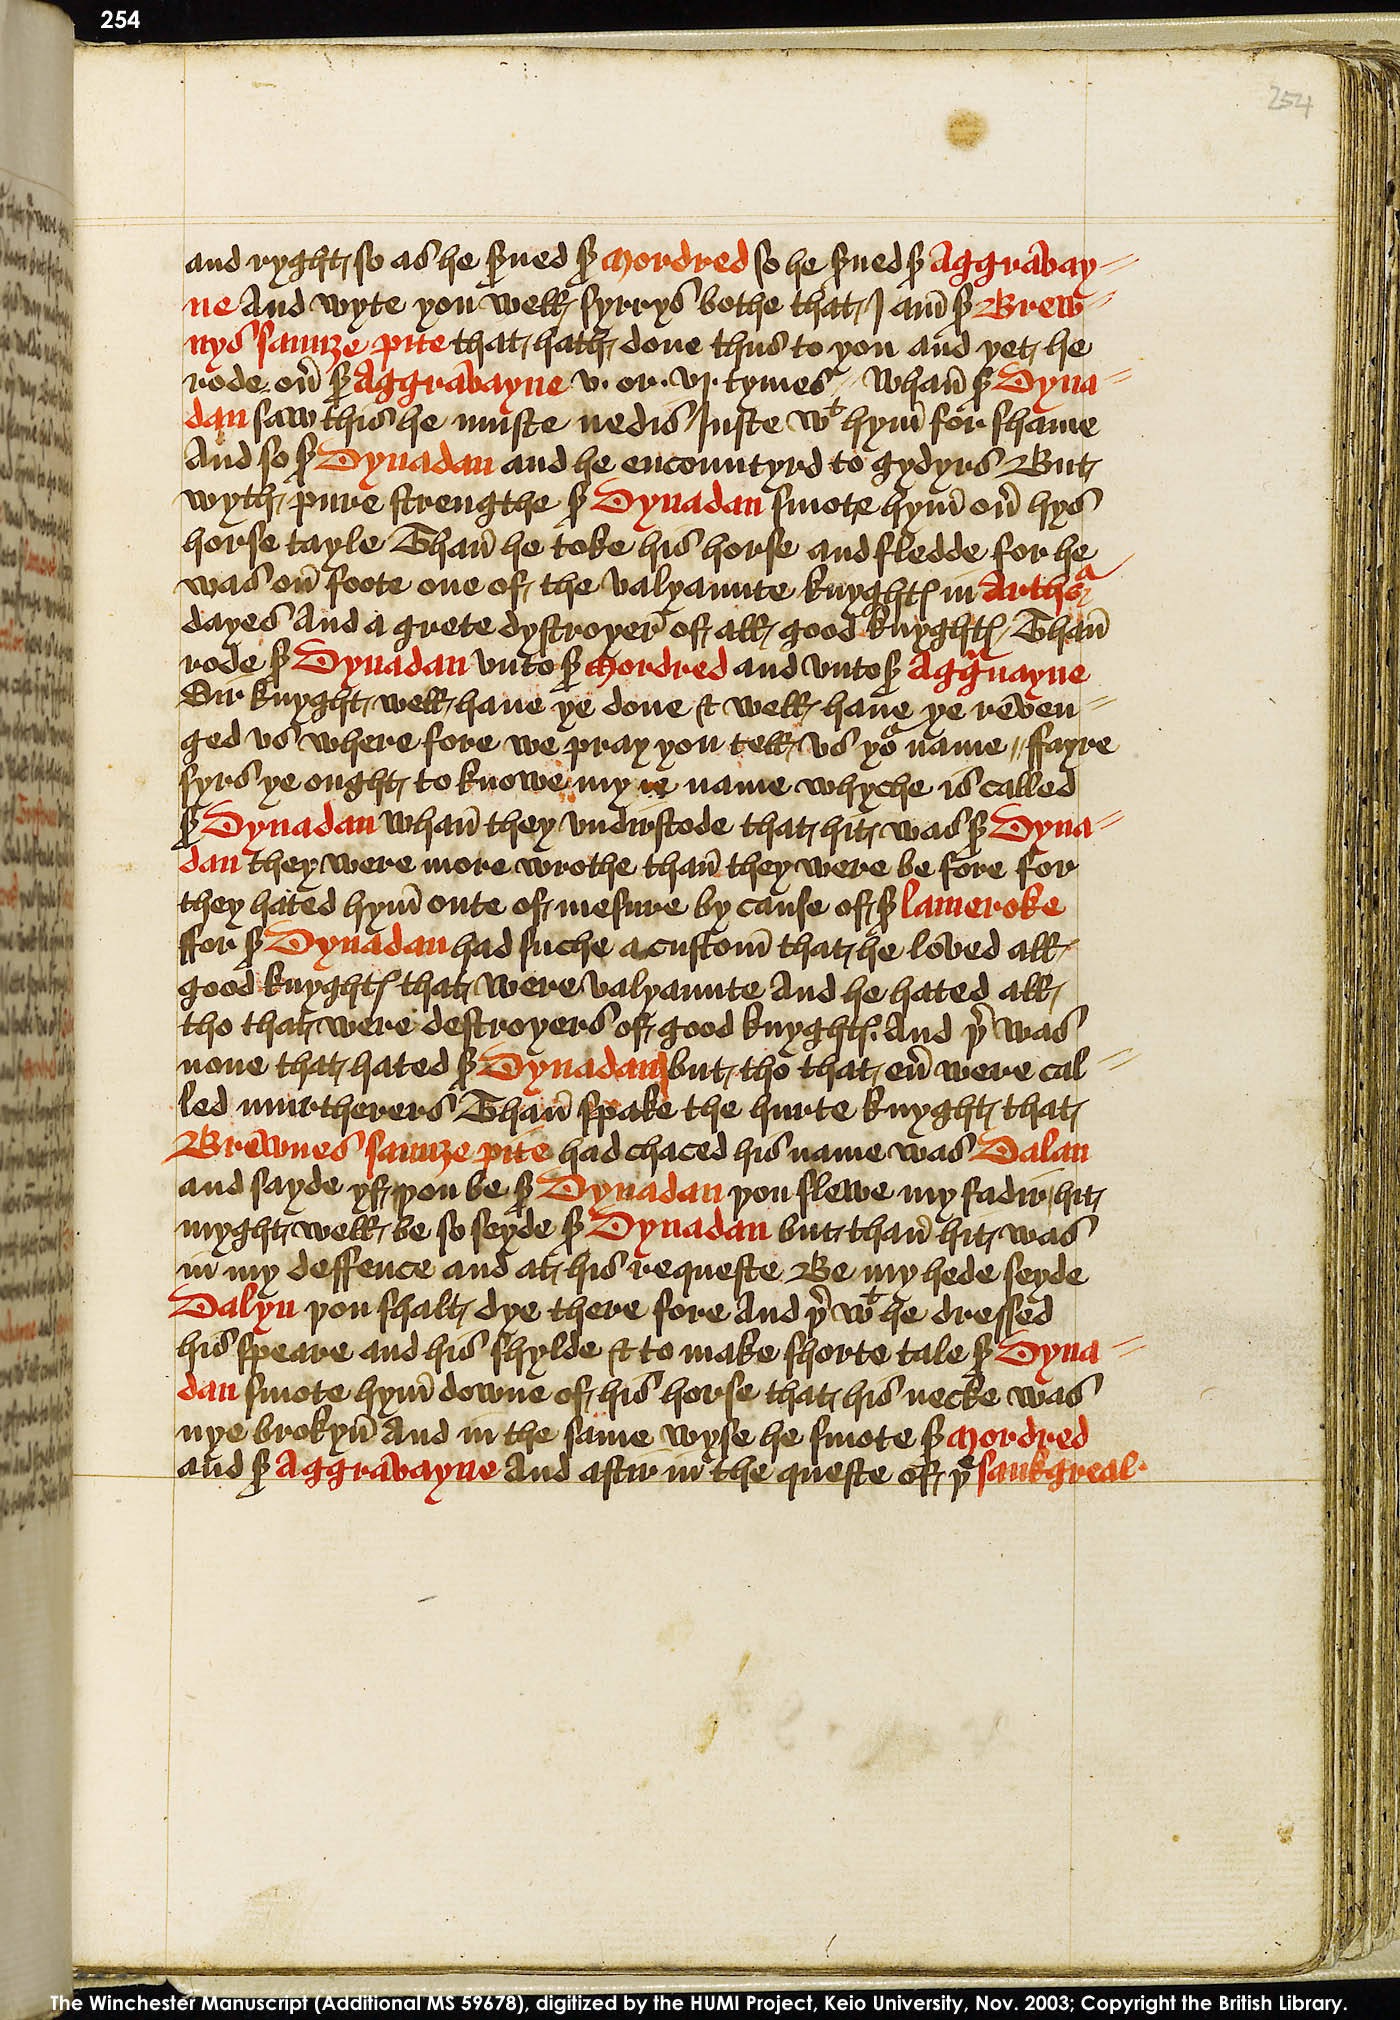 254
254
and ryght so as he s̄ued s̄ Mordred so he s̄ued s̄ Aggravay=
ne And wyte you well syrrys bothe that I am̄ s̄ Brew=
nys saunze pite that hath done thus to you and yet he
rode on̄ s̄ Aggravayne v. or. vj tymes // Whan̄ s̄ Dyna=
dan saw this he muste nedis Juste wᵗ hym̄ for shame
And so s̄ Dynadan and he encountyrd to gydyrs But
wyth pure strengthe s̄ Dynadan smote hym̄ on̄ hys
horse tayle Than̄ he toke his horse and fledde for he
was on̄ foote one of the valyaunte knyghtꝭ in Arthurs
dayes And a grete dystroyer of all good knyghtꝭ Than̄
rode s̄ Dynadan vnto s̄ Mordred and vnto s̄ Aggᵃuayne
Sir knyght well haue ye done & well haue ye reven=
ged vs where fore we pray you tell vs yoʳ name // ffayre
syrs ye ought to knowe my ne name whyche is called
s̄ Dynadan whan̄ they vndirstode that hit was s̄ Dyna=
dan they were more wrothe than̄ they were be fore for
they hated hym̄ oute of mesure by cause of s̄ lameroke
ffor s̄ Dynadan had suche a custom̄ that he loved all
good knyghtꝭ that were valyaunte And he hated all
tho that were destroyers of good knyghtꝭ. And þ̄ was
none that hated s̄ Dynadan but tho that eū were cal=
led murtherers Than̄ spake the hurte knyght that
Brewnes saunze pite had chaced his name was Dalan
and sayde yf þou be s̄ Dynadan þou slewe my fadir hit
myght well be so seyde s̄ Dynadan but than̄ hit was
in my deffence and at his requeste Be my hede seyde
Dalyn þou shalt dye there fore And þ̄ wᵗ he dressed
his speare and his shylde & to make shorte tale s̄ Dyna=
dan smote hym̄ downe of his horse that his necke was
nye brokyn̄ And in the same wyse he smote s̄ Mordred
and s̄ Aggravayne And aftir in the queste of þᵉ sankgreal.
The Winchester Manuscript (Additional MS 59678), digitized by the HUMI Project, Keio University, Nov. 2003; Copyright the British Library.